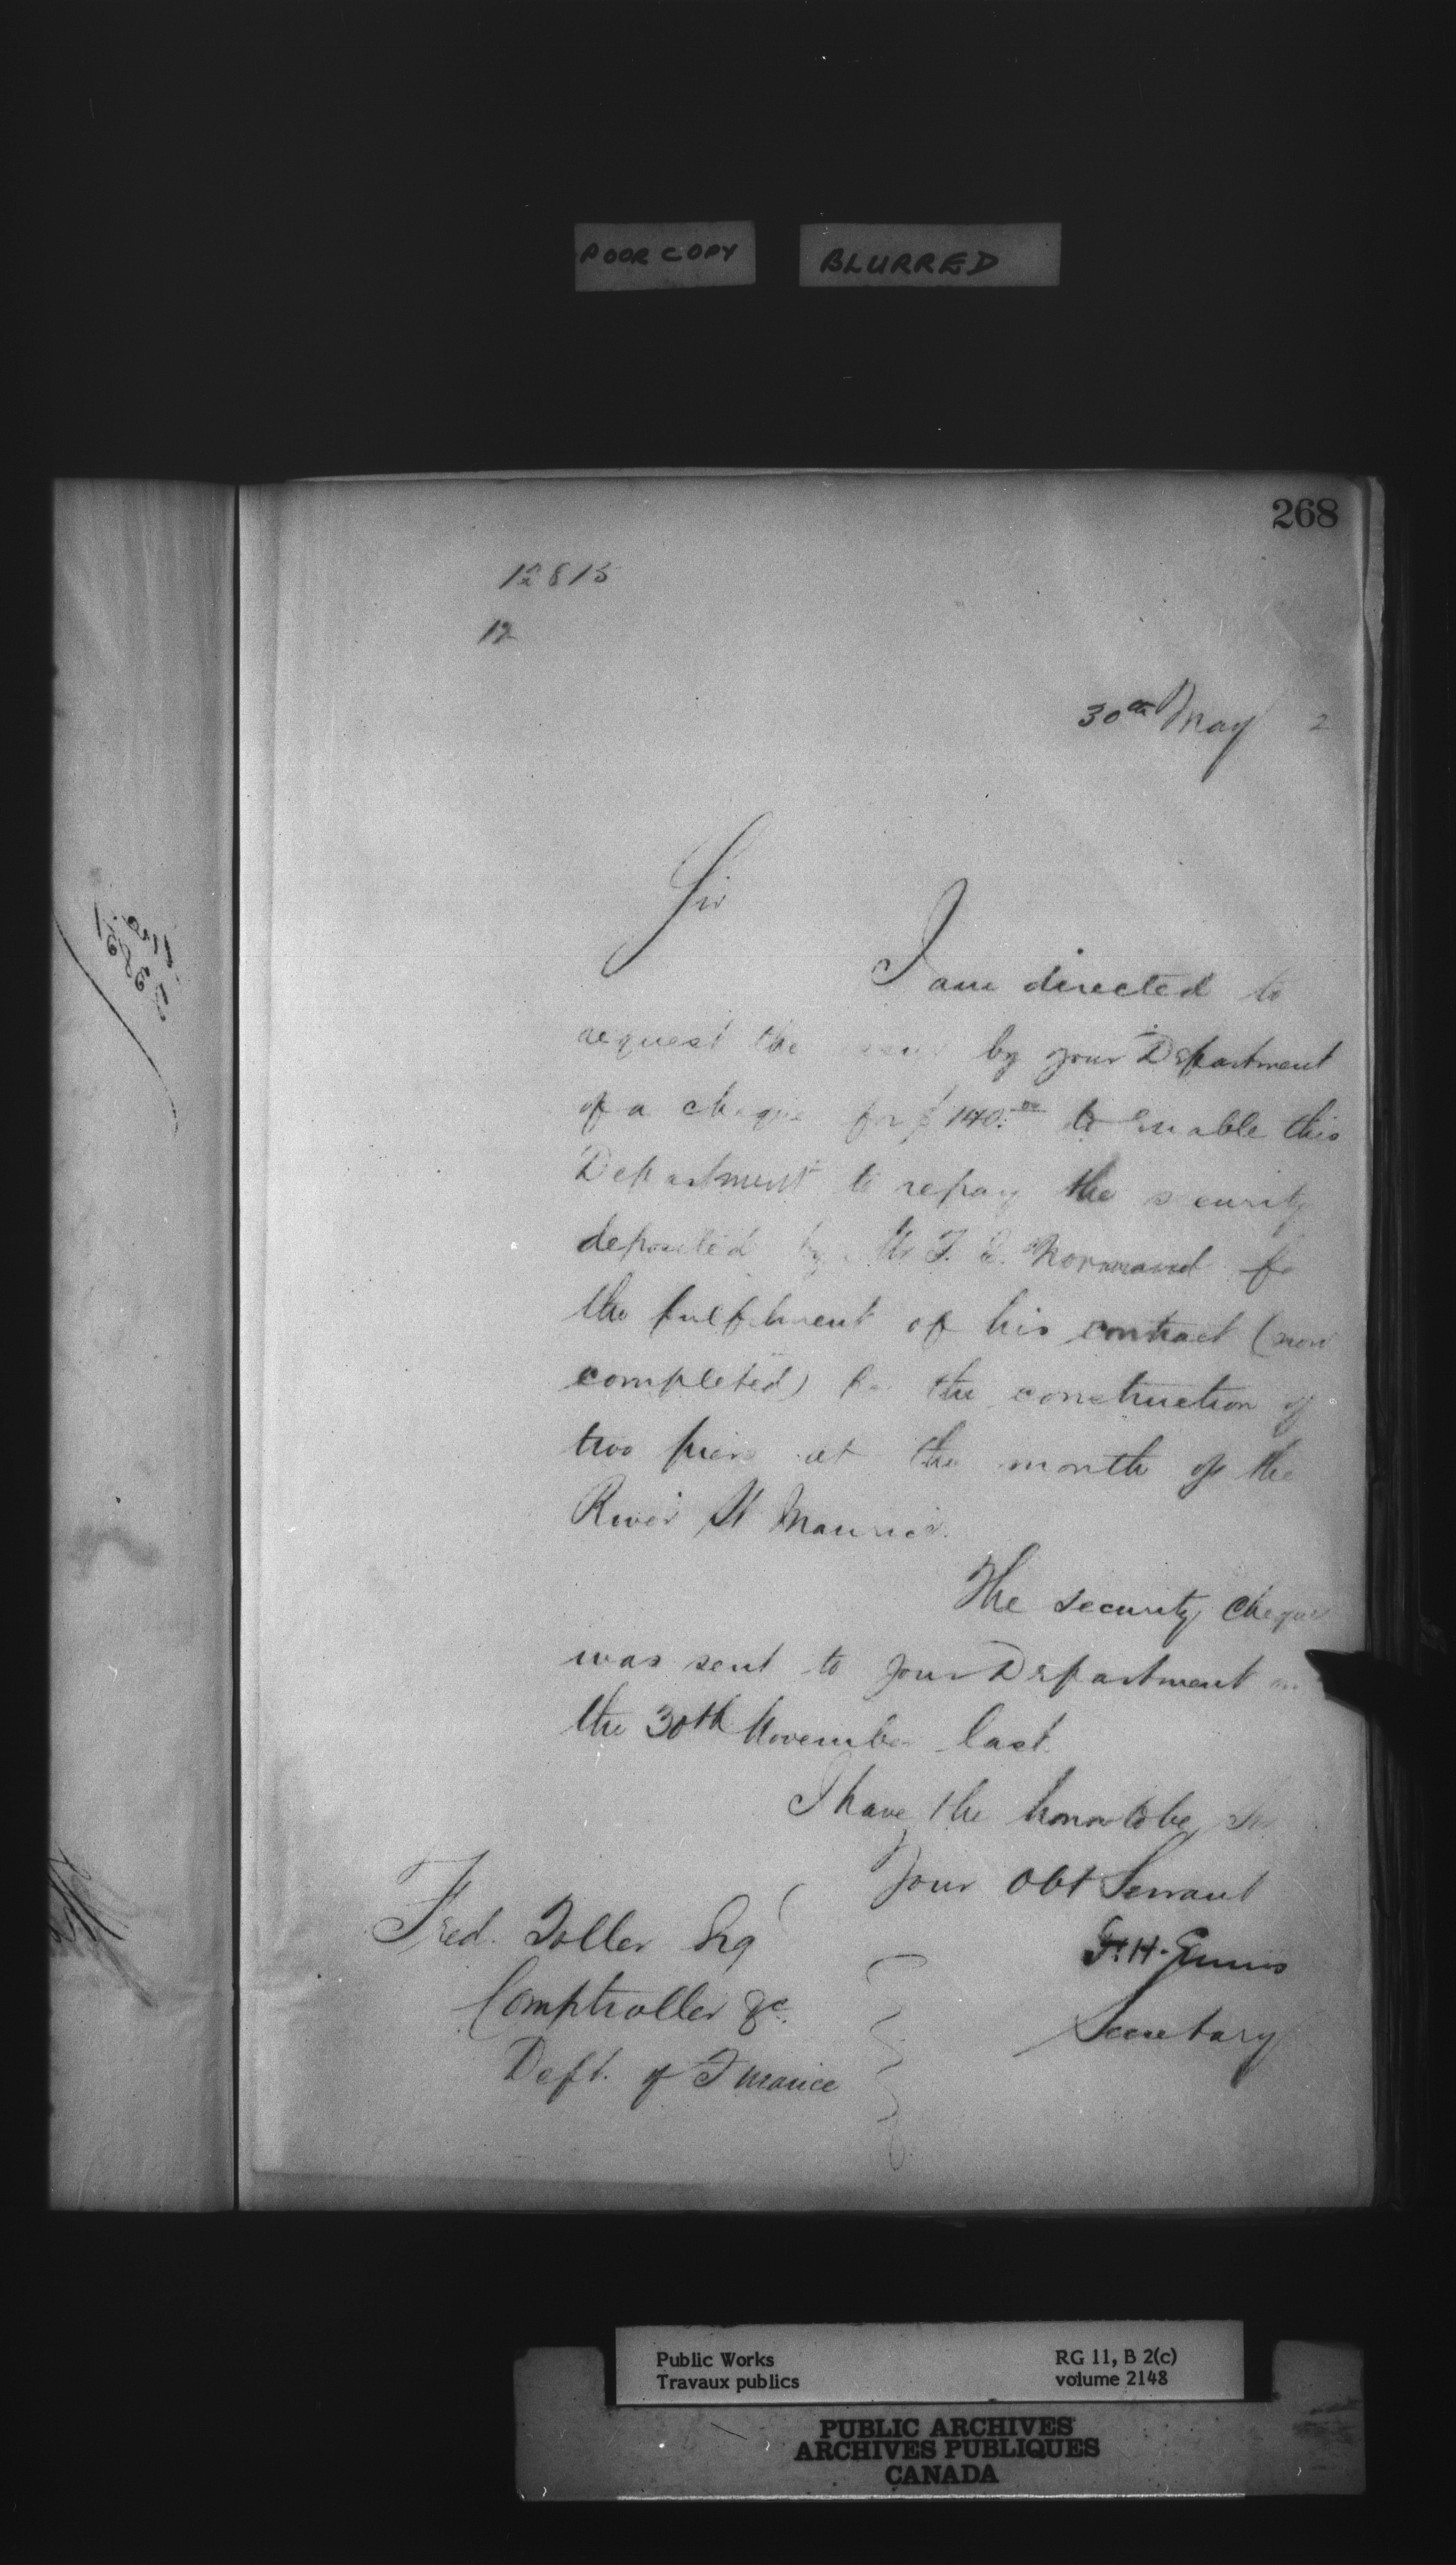 POOR COPY BLURRED
268
12815
12
30th May 2
Sir
I am directed to
request the by your Department
of a cheque for $140.00 to enable this
Department to repay the security
deposited by Mr F. E. Normand for
the fulfilment of his contract (now
completed) for the construction of
two piers at the mouth of the
River St Maurice.
The security cheque
was sent to your Department on
the 30th November last.
I have the honor to be Sir
Your Obt Servant
F. H. Ennis
Secretary
Fred. Toller Esq
Comptroller &c.
Dept. of Finance
Public Works
Travaux publics
RG 11, B 2(c)
volume 2148
PUBLIC ARCHIVES
ARCHIVES PUBLIQUES
CANADA